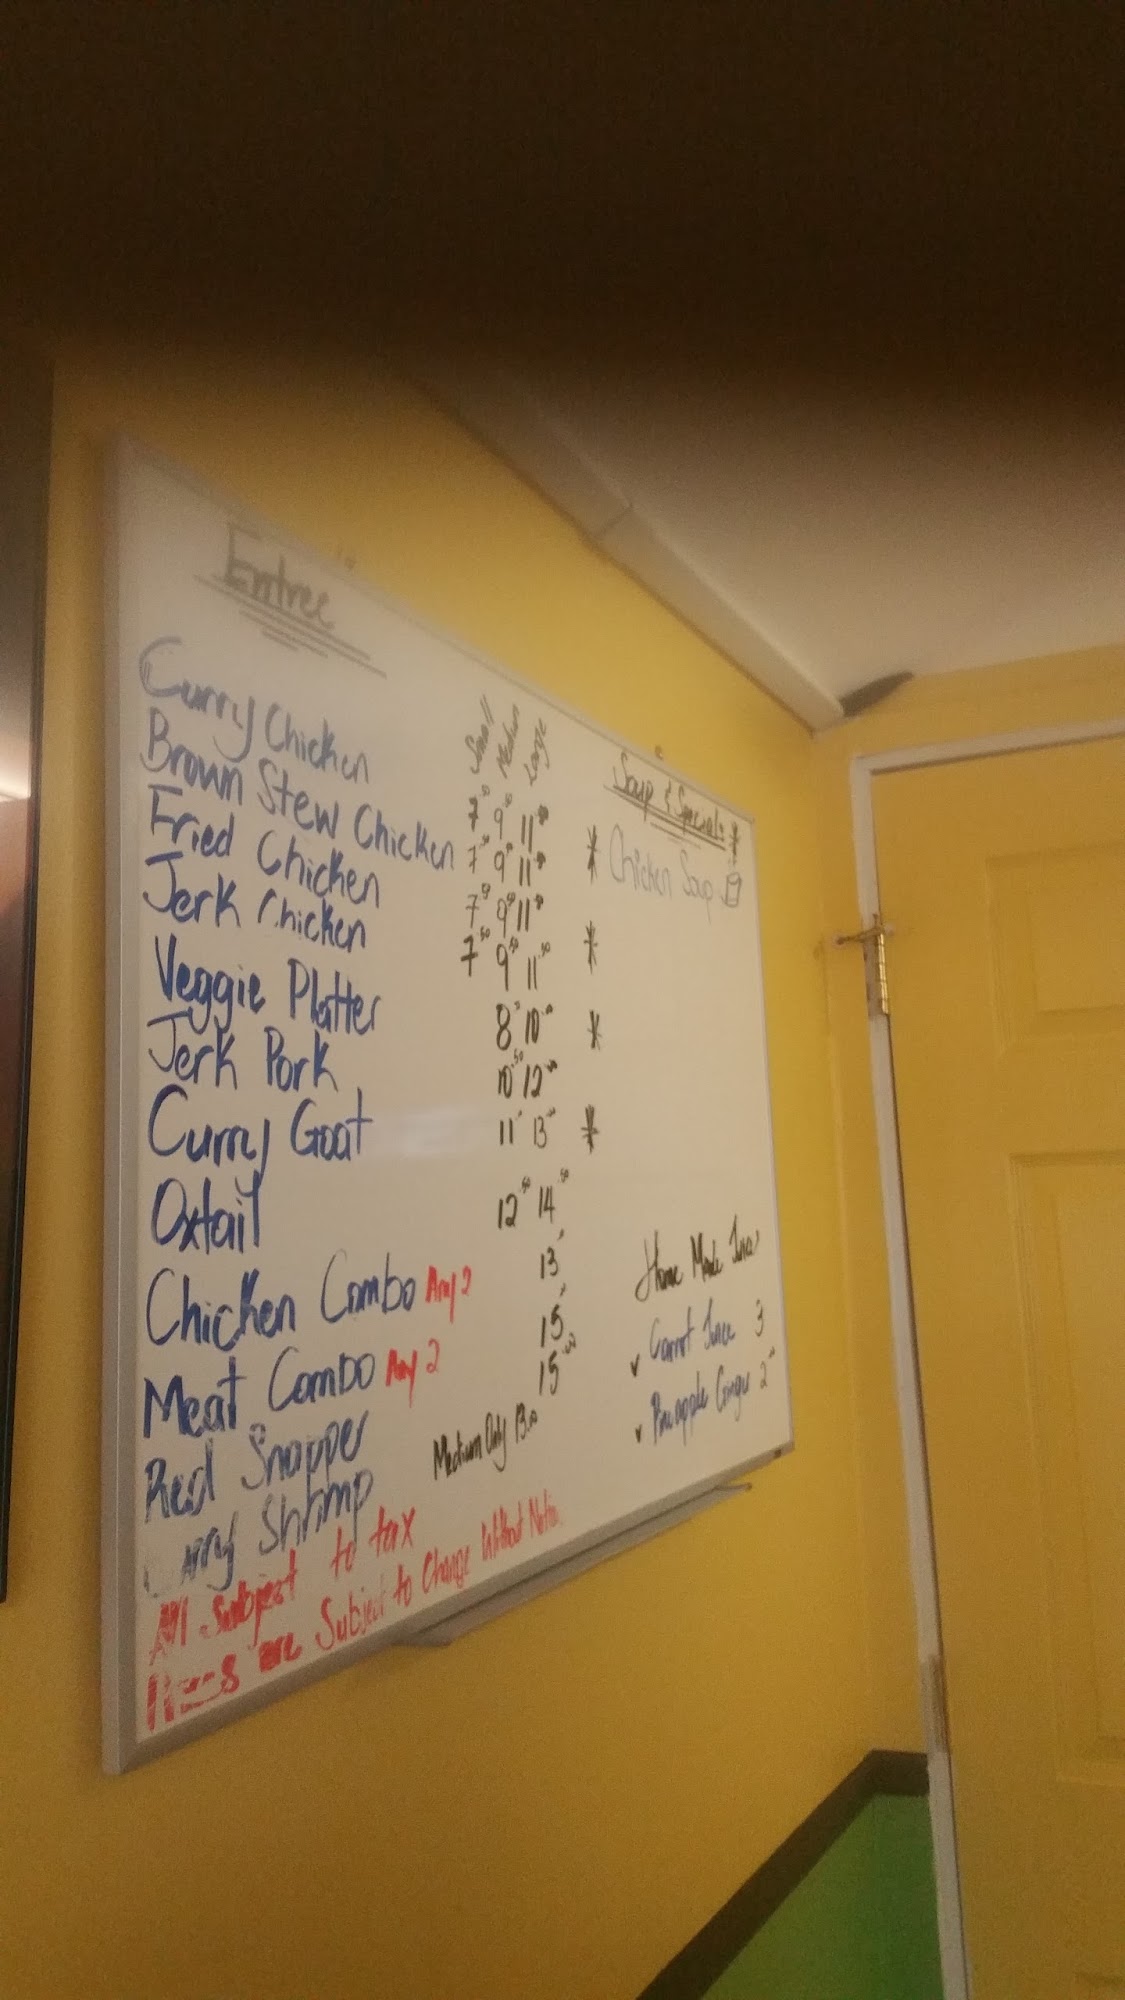 Entree
Small Medium Large
Curry Chicken 7.50 9.50 11.50
Brown Stew Chicken 7.50 9.50 11.50
Fried Chicken 7.50 9.50 11.50
Jerk Chicken 7.50 9.50 11.50
Veggie Platter 8 10
Jerk Pork 10.50 12
Curry Goat 11 13
Oxtail 12.50 14.50
Chicken Combo Any 2 13
Meat Combo Any 2 15
Red Snapper 15.00
Curry Shrimp Medium Only 13.00
All subject to tax
are Subject to Change Without Notice
Soup & Specials *
* Chicken Soup
*
*
*
Home Made Juice
✓ Carrot Juice 3
✓ Pineapple Ginger 2